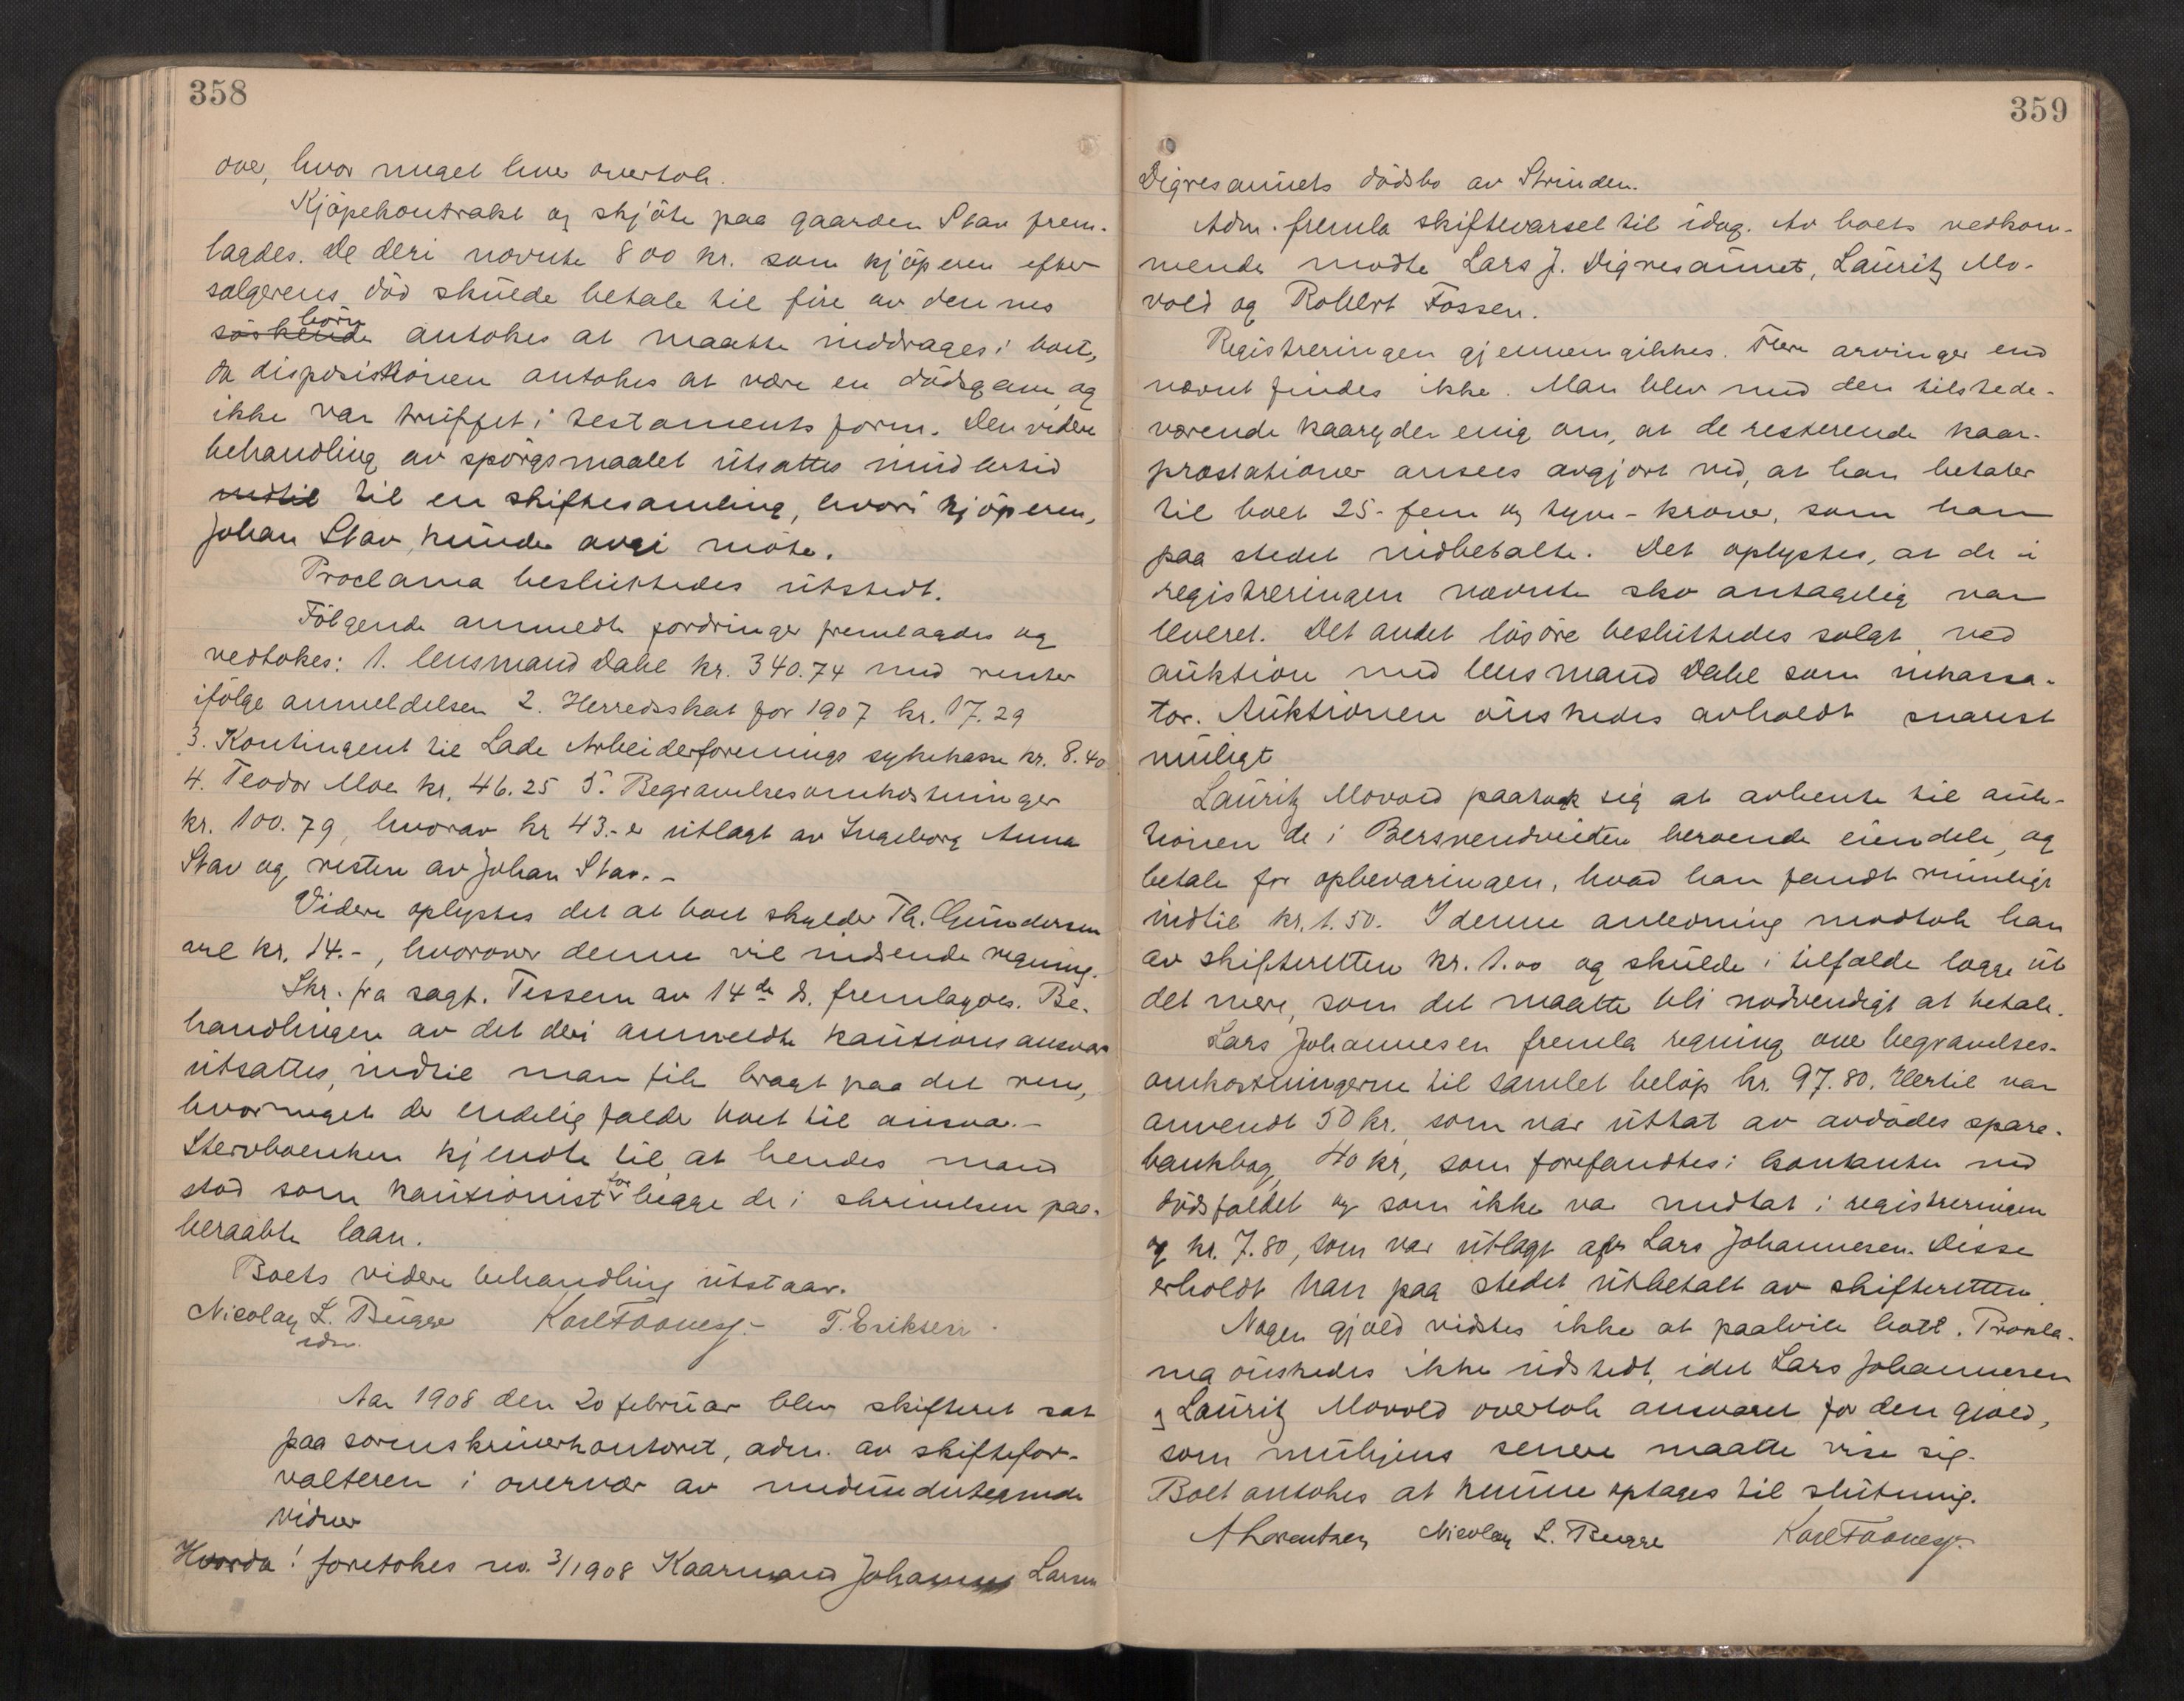 358
over, hvor meget hver overtok.
Kjöpekontrakt og skjöte paa gaarden Stav frem-
lagdes. De deri nævnte 800 kr. som kjöperen efter
sælgerens död skulde betale til fire av dennes
söskende börn antokes at maatte inddrages i boet,
da disposistionen antokes at være en dödsgave og
ikke var truffet i testaments form. Den videre
behandling av spörgsmaalet utsattes imidlertid
indtil til en skiftesamling, hvori kjöperen,
Johan Stav, kunde møte.
Proclama besluttedes utstedt.
Fölgende anmeldte fordringer fremlagdes og
vedtokes: 1. lensmand Dahl kr. 340.74 med renter
ifölge anmeldelsen 2. Herredsskat for 1907 kr. 17.29
3. Kontingent til Lade Arbeiderforenings sykekasse kr. 8.40
4. Teodor Moe kr. 46.25 5. Begravelsesomkostninger
kr. 100.79, hvorav kr 43.- er utlagt av Ingeborg Anna
Stav og resten av Johan Stav. -
Videre oplystes det at boet skylder Th. Gundersen
ca. kr. 14.-, hvorover denne vil indsende regning.
Skr. fra sagf. Tessem av 14de ds. fremlagdes. Be-
handlingen av det deri anmeldte kautionsansvar
utsattes, indtil man fik bragt paa det rene,
hvormeget der endelig falder boet til ansvar. -
Stervboenken kjendte til at hendes mand
stod som kautionist for begge de i skrivelsen paa-
beraabte laan.
Boets videre behandling utstaar.
Nicolay L. Bugge Karl Faanes. T. Eriksen
adm.
Aar 1908 den 20 februar blev skifteret sat
paa sorenskriverkontoret, adm. av skiftefor-
valteren i overvær av medundertegnede
vidner
Hvorda! foretokes no. 3/1908 Kaarmand Johannes Larsen
359
Digresaunets dödsbo av Strinden.
Adm. fremla skiftevarsel til idag. Av boets vedkom-
mende mødte Lars J. Digresaunet, Lauritz Mo-
vold og Robert Fossen.
Registreringen gjennemgikkes. Flere arvinger end
nævnt findes ikke. Man blev med den tilstede-
værende kaaryder enig om, at de resterende kaar-
præstationer ansees avgjort ved, at han betaler
til boet 25 - fem og tyve - kroner, som han
paa stedet indbetalte. Det oplystes, at de i
registreringen nævnte sko antagelig var
leveret. Det andet lösöre besluttedes solgt ved
auktion med lensmand Dahl som inkassa-
tor. Auktionen önskedes avholdt snarest
muligt
Lauritz Movold paatok sig at avhente til auk-
tionen de i Bersvendveiten beroende eiendele, og
betale for opbevaringen, hvad han fandt rimeligt
indtil kr. 1.50. I denne anledning modtok han
av skifteretten kr. 1.00 og skulde i tilfælde lægge ut
det mere, som det maatte bli nødvendigt at betale.
Lars Johannesen fremla regning over begravelses-
omkostningerne til samlet belöp kr. 97.80. Hertil var
anvendt 50 kr. som var uttat av avdödes spare-
bankbog, 40 kr, som forefandtes i kontanter ved
dödsfaldet og som ikke var medtat i registreringen
og kr. 7.80, som var utlagt af Lars Johannesen. Disse
erholdt han paa stedet utbetalt av skifteretten.
Nogen gjæld vidstes ikke at paahvile boet. Prokla-
ma önskedes ikke udstedt, idet Lars Johannesen
og Lauritz Movold overtok ansvaret for den gjæld,
som muligens senere maatte vise sig.
Boet antokes at kunne optages til slutning.
A Lorentzen Nicolay L. Bugge Karl Faanes.